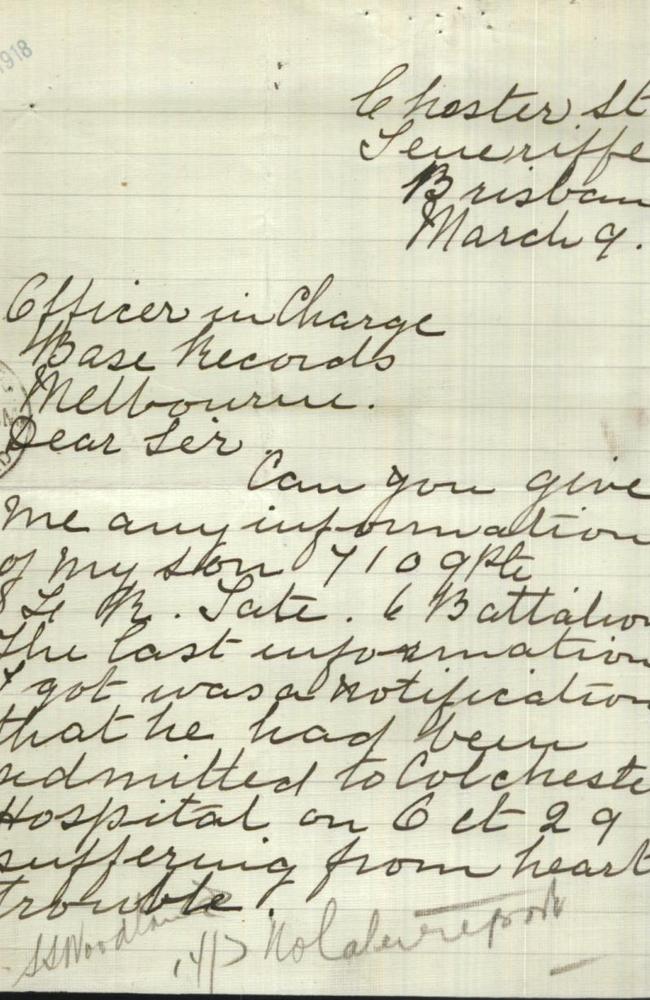 1918
Chester St
Teneriffe
Brisban
March 9.
Officer in Charge
Base Records
Melbourne.
Dear Sir
Can you give
me any information
of my son 7109 Pte
Tate. 6 Battalion
The last information
I got was a notification
that he had been
admitted to Colcheste
Hospital on Oct 29
suffering from heart
trouble.
No later report